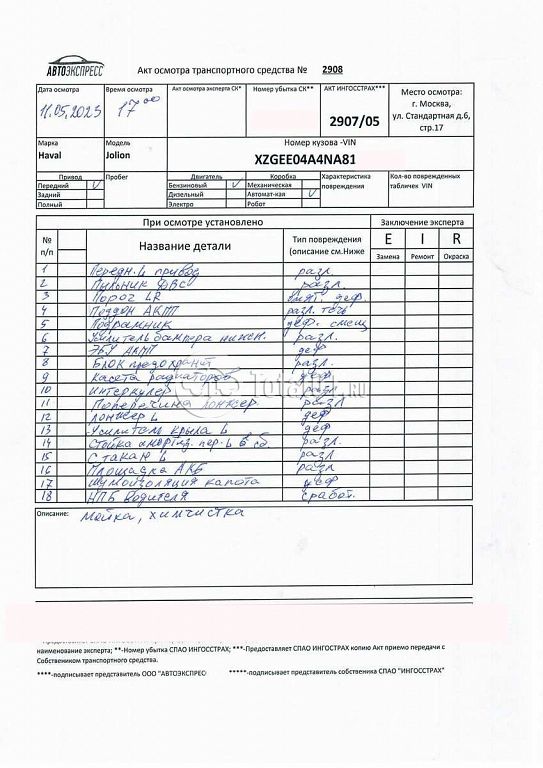 АВТОЭКСПРЕСС
Акт осмотра транспортного средства № 2908
Дата осмотра
11.05.2023
Время осмотра
17 00
Акт осмотра эксперта СК*
Номер убытка СК**
АКТ ИНГОССТРАХ***
2907/05
Место осмотра:
г. Москва,
ул. Стандартная д.6,
стр.17
Марка
Haval
Модель
Jolion
Номер кузова -VIN
XZGEE04A4NA81
Привод
Передний V
Задний
Полный
Пробег
Двигатель
Бензиновый V
Дизельный
Электро
Коробка
Механическая
Автомат-кая V
Робот
Характеристика
повреждения
Кол-во поврежденных
табличек VIN
При осмотре установлено
Заключение эксперта
№
п/п
Название детали
Тип повреждения
(описание см.Ниже
E I R
Замена Ремонт Окраска
1 Передн. L привод разл.
2 Пыльник ДВС разл.
3 Порог LR деф.
4 Поддон АКПП разл. течь
5 Подрамник деф. смещ
6 Усилитель бампера нижн. разл.
7 ЭБУ АКПП деф
8 Блок предохранит разл.
9 Касета радиаторов деф.
10 Интеркулер разл.
11 Поперечина лонжер. разл
12 Лонжер L деф
13 Усилитель крыла L деф
14 Стойка амортиз. пер. L в сб. разл.
15 Стакан L разл
16 Площадка АКБ разл
17 Шумоизоляция капота деф
18 НПБ водителя сработ.
Totalavto.RU
Описание: Мойка, химчистка
наименование эксперта; **-Номер убытка СПАО ИНГОССТРАХ; ***-Предоставляет СПАО ИНГОСТРАХ копию Акт приемо передачи с
Собственником транспортного средства.
****-подписывает представитель ООО "АВТОЭКСПРЕС *****-подписывает представитель собственика СПАО "ИНГОССТРАХ"